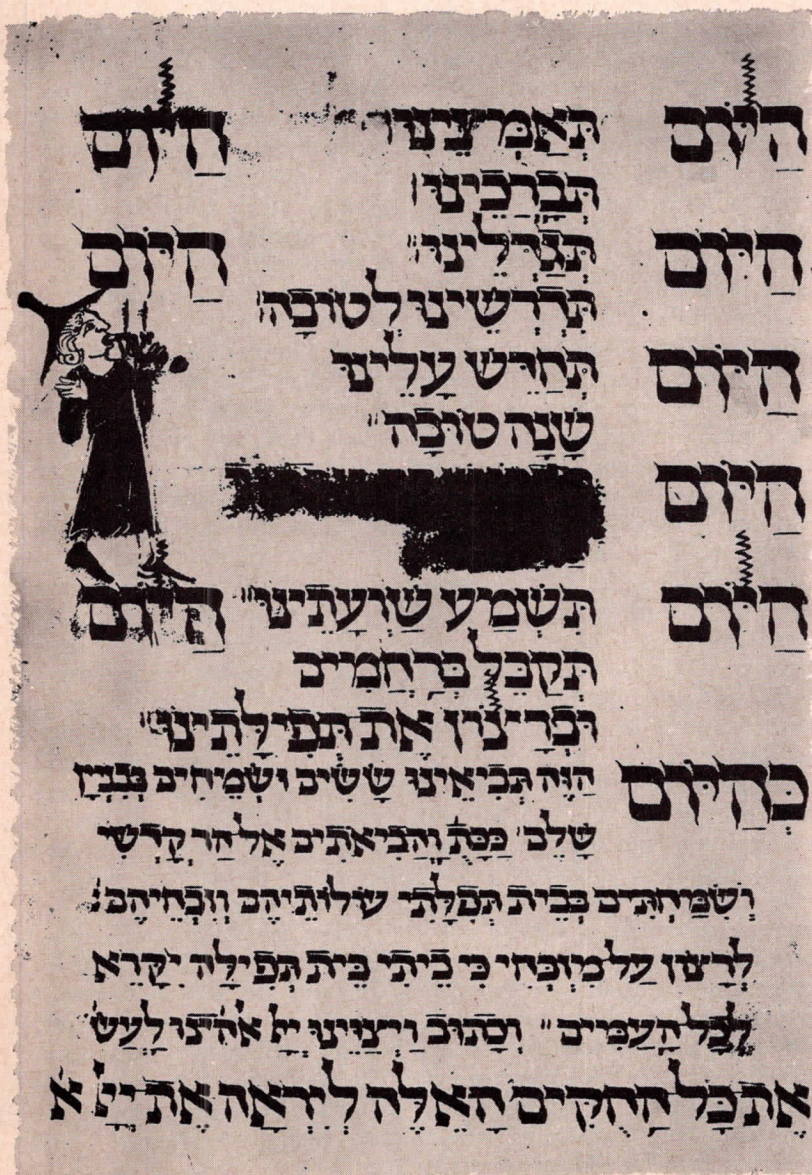 הַיּוֹם תְּאַמְּצֵינוּ הַיּוֹם
תְּבָרְכֵינוּ
הַיּוֹם תְּגַדְּלֵינוּ הַיּוֹם
תִּדְרְשֵׁינוּ לְטוֹבָה
הַיּוֹם תְּחַדֵּשׁ עָלֵינוּ
שָׁנָה טוֹבָה
הַיּוֹם
הַיּוֹם תִּשְׁמַע שַׁוְעָתֵינוּ הַיּוֹם
תְּקַבֵּל בְּרַחֲמִים
וּבְרָצוֹן אֶת תְּפִילָתֵינוּ
כְּהַיּוֹם הַזֶּה תְּבִיאֵינוּ שָׂשִׂים וּשְׂמֵיחִים בְּבִנְיָן
שָׁלֵם ככת וַהֲבִיאֹתִים אֶל הַר קָדְשִׁי
וְשִׂמַּחְתִּים בְּבֵית תְּפִלָּתִי עוֹלוֹתֵיהֶם וְזִבְחֵיהֶם
לְרָצוֹן עַל מִזְבְּחִי כִּי בֵיתִי בֵּית תְּפִילָּה יִקָּרֵא
לְכָל הָעַמִּים וְכָתוּב וַיְצַוֵּינוּ יְיָ אלהינו לַעֲשׂ
אֶת כָּל הַחֻקִּים הָאֵלֶּה לְיִרְאָה אֶת יְיָ א